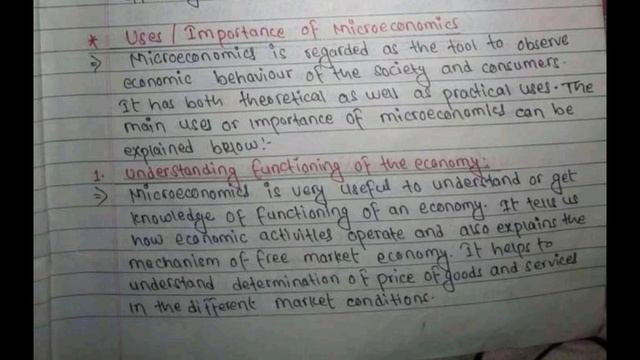 * Uses / Importance of Microeconomics
⇒ Microeconomics is regarded as the tool to observe
economic behaviour of the society and consumers.
It has both theoretical as well as practical uses. The
main uses or importance of microeconomics can be
explained below:-
1. Understanding functioning of the economy:
⇒ Microeconomics is very useful to understand or get
knowledge of functioning of an economy. It tells us
how economic activities operate and also explains the
mechanism of free market economy. It helps to
understand determination of price of goods and services
in the different market conditions.